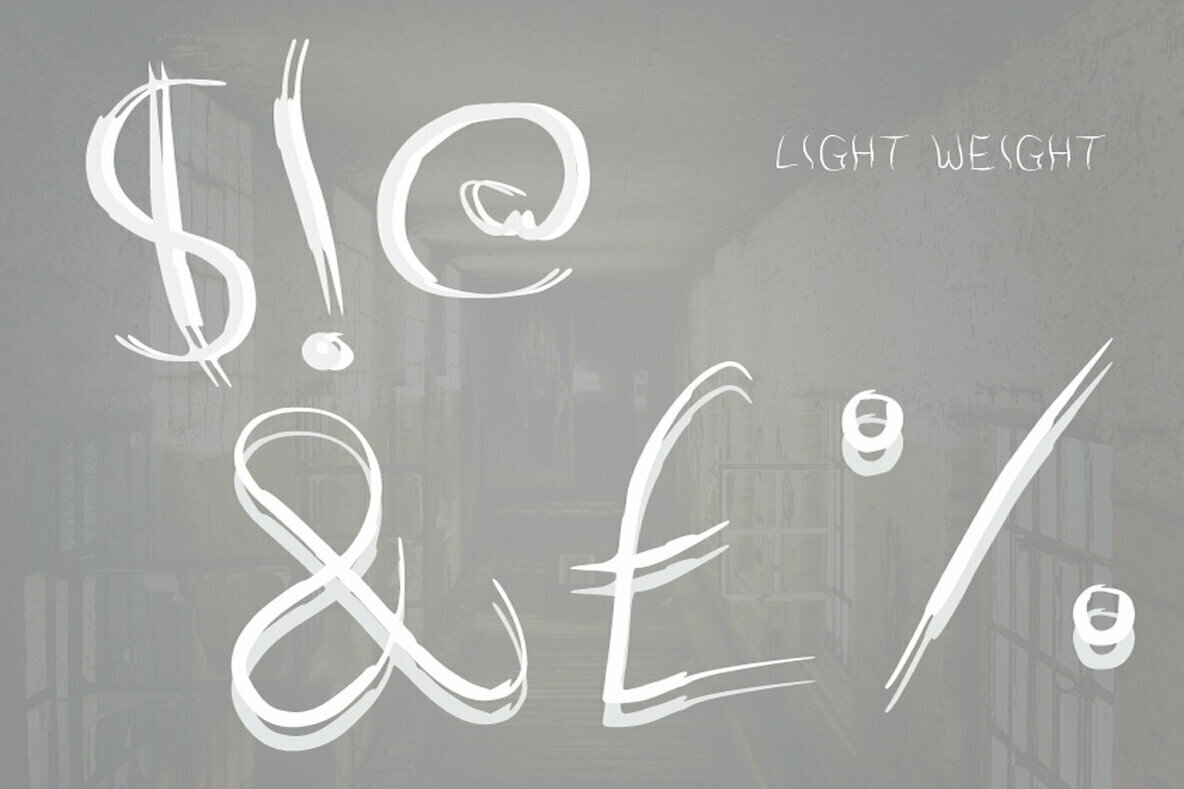 $!@
LIGHT WEIGHT
&£%